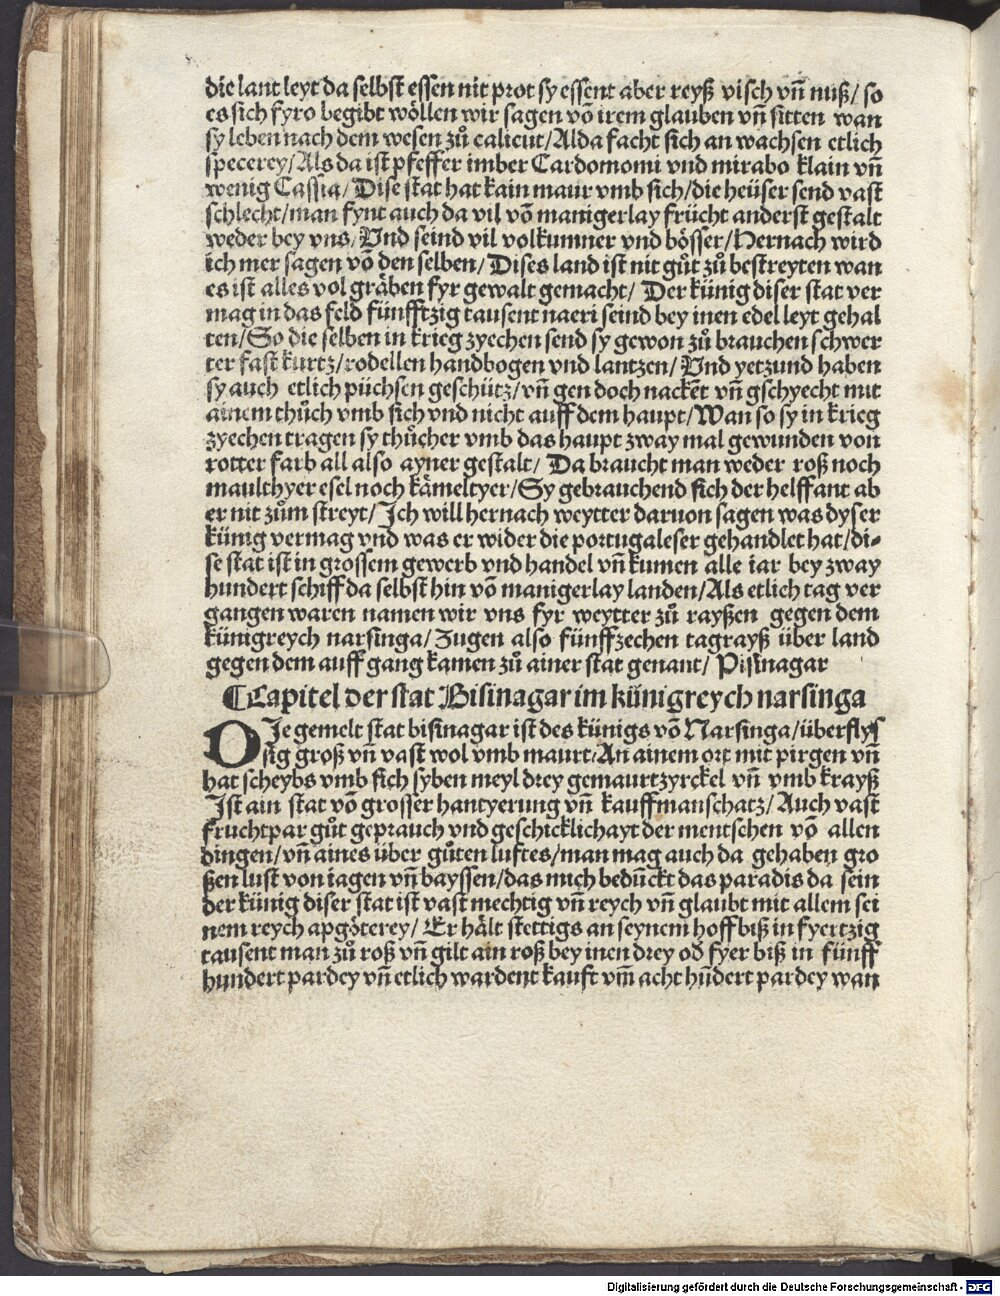 die lant leyt da selbst essen nit prot sy essent aber reyß visch vn̄ nuß/ so
es sich fyro begibt wöllen wir sagen vō irem glauben vn̄ sitten wan
sy leben nach dem wesen zů calicut/Alda facht sich an wachsen etlich
specerey/Als da ist pfeffer imber Cardomomi vnd mirabo klain vn̄
wenig Cassia/ Dise stat hat kain maur vmb sich/die heüser send vast
schlecht/man fynt auch da vil vō manigerlay frücht anderst gestalt
weder bey vns/ Vnd seind vil volkumner vnd bösser/Hernach wird
ich mer sagen vō den selben/ Dises land ist nit gůt zů bestreyten wan
es ist alles vol gräben fyr gewalt gemacht/ Der künig diser stat ver
mag in das feld fünfftzig tausent naeri seind bey inen edel leyt gehal
ten/So die selben in krieg zyechen send sy gewon zů brauchen schwer
ter fast kurtz/rodellen handbogen vnd lantzen/ Vnd yetzund haben
sy auch etlich püchsen geschütz/vn̄ gen doch nackēt vn̄ gschyecht mit
ainem thůch vmb sich vnd nicht auff dem haupt/Wan so sy in krieg
zyechen tragen sy thůcher vmb das haupt zway mal gewunden von
rotter farb all also ayner gestalt/ Da braucht man weder roß noch
maulthyer esel noch kämeltyer/Sy gebrauchend sich der helffant ab
er nit zům streyt/Ich will hernach weytter daruon sagen was dyser
künig vermag vnd was er wider die portugaleser gehandlet hat/di-
se stat ist in grossem gewerb vnd handel vn̄ kumen alle iar bey zway
hundert schiff da selbst hin vō manigerlay landen/Als etlich tag ver
gangen waren namen wir vns fyr weytter zů rayßen gegen dem
künigreych narsinga/Zugen also fünffzechen tagrayß über land
gegen dem auff gang kamen zů ainer stat genant/ Pisinagar
¶Capitel der stat Bisinagar im künigreych narsinga
DIe gemelt stat bisinagar ist des künigs vō Narsinga/überflys
sig groß vn̄ vast wol vmb maurt/An ainem ort mit pirgen vn̄
hat scheybs vmb sich syben meyl drey gemaurt zyrckel vn̄ vmb krayß
Ist ain stat vō grosser hantyerung vn̄ kauffmanschatz/Auch vast
fruchtpar gůt geprauch vnd geschicklichayt der mentschen vō allen
dingen/vn̄ aines über gůten luftes/man mag auch da gehaben gro
ßen lust von iagen vn̄ bayssen/das mich bedūckt das paradis da sein
der künig diser stat ist vast mechtig vn̄ reych vn̄ glaubt mit allem sei
nem reych apgöterey/ Er hält stettigs an seynem hoff biß in fyertzig
tausent man zů roß vn̄ gilt ain roß bey inen drey od̄ fyer biß in fünff
hundert pardey vn̄ etlich wardent kauft vm̄ acht hūdert pardey wan
Digitalisierung gefördert durch die Deutsche Forschungsgemeinschaft - DFG